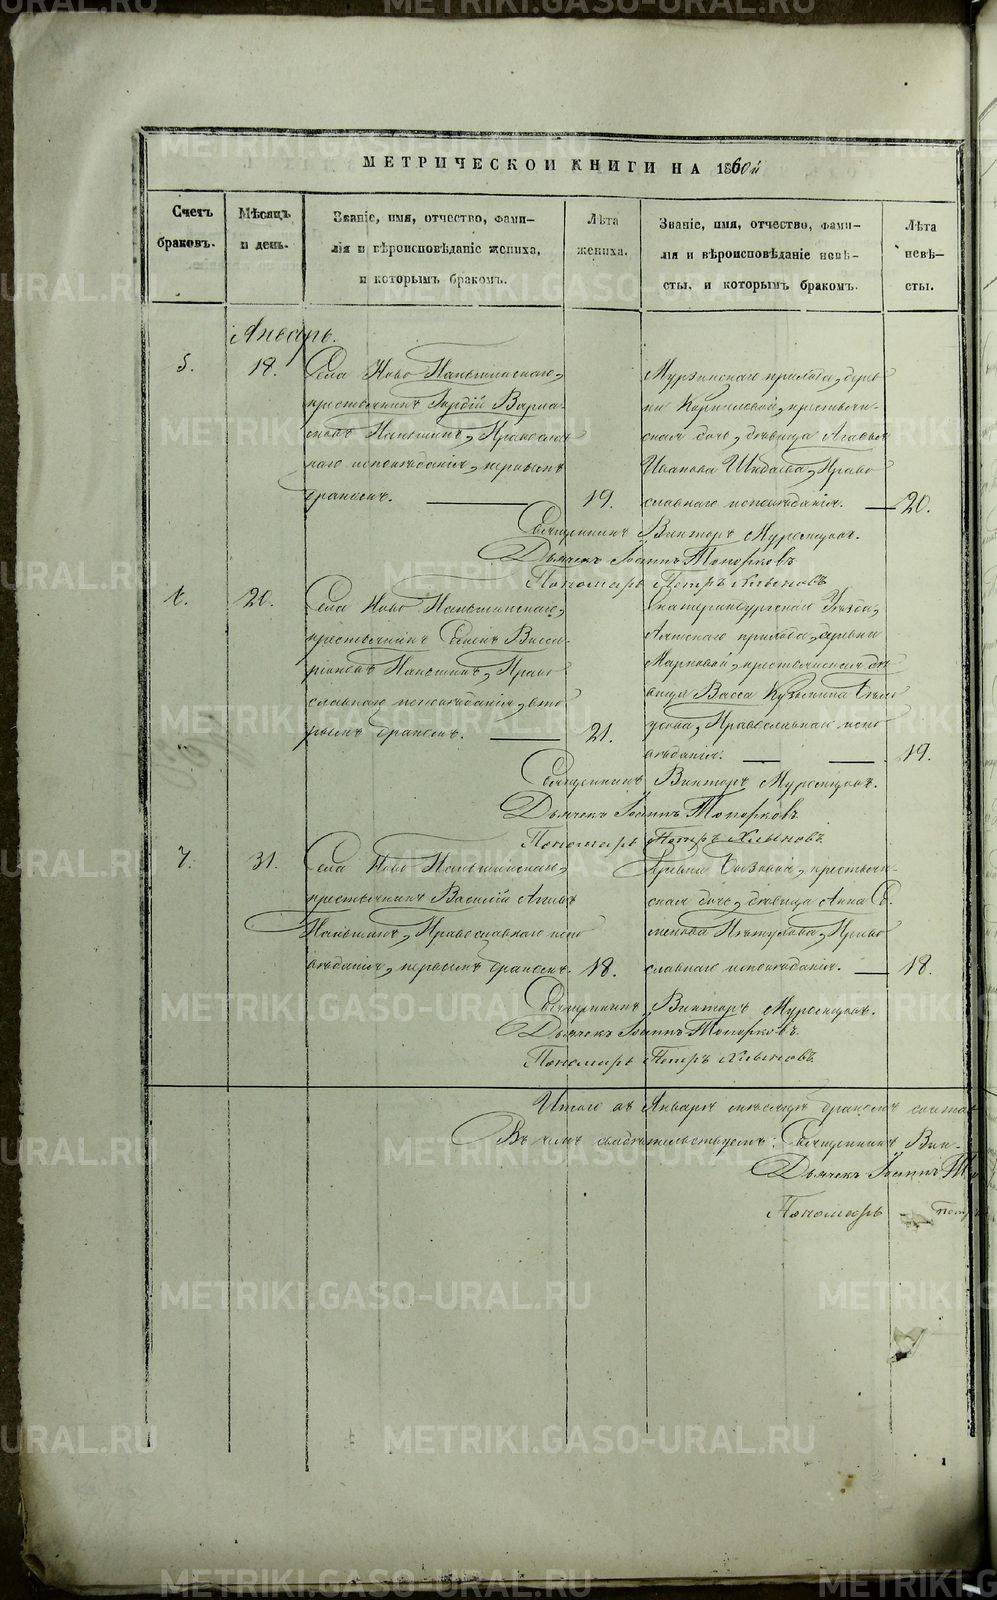 МЕТРИЧЕСКОЙ КНИГИ НА 1860й
Счетъ браковъ.
Мѣсяцъ и день.
Званіе, имя, отчество, фами-
лія и вѣроисповѣданіе жениха,
и которымъ бракомъ.
Лѣта жениха.
Званіе, имя, отчество, фами-
лія и вѣроисповѣданіе невѣ-
сты, и которымъ бракомъ.
Лѣта невѣ-
сты.
Январь.
5.
18.
Села Ново Паньшинскаго,
крестьянинъ Гордій Варла-
мовъ Паньшинъ, Православ
наго исповѣданія, первымъ
бракомъ.
19.
Мурзинскаго прихода, дерев
ни Корниловой, крестьян-
ская дочь, дѣвица Агафья
Иванова Право
славнаго исповѣданія.
20.
Священникъ Викторъ
Дьячекъ Іоаннъ Топорковъ
Пономарь Петръ Хлыновъ
6.
20.
Села Ново Паньшинскаго,
крестьянинъ Висса-
ріоновъ Паньшинъ, Право
славнаго исповѣданія, вто
рымъ бракомъ.
21.
Екатеринбургскаго Уѣзда,
прихода, деревни
крестьянская дѣ
вица Васса Кузьмина Бѣло
усова, Православнаго испо
вѣданія.
19.
Священникъ Викторъ
Дьячекъ Іоаннъ Топорковъ
Пономарь Петръ Хлыновъ
7.
31.
Села Ново Паньшинскаго,
крестьянинъ Василій
Паньшинъ, Православнаго испо
вѣданія, первымъ бракомъ.
18.
Деревни крестьян-
ская дочь, дѣвица Анна Се
менова Пѣтухова, Право
славнаго исповѣданія.
18.
Священникъ Викторъ
Дьячекъ Іоаннъ Топорковъ
Пономарь Петръ Хлыновъ
Итого въ Январѣ мѣсяцѣ браковъ
Въ чемъ свидѣтельствуемъ: Священникъ Вик-
Дьячекъ Іоаннъ То
Пономарь Петръ
METRIKI.GASO-URAL.RU